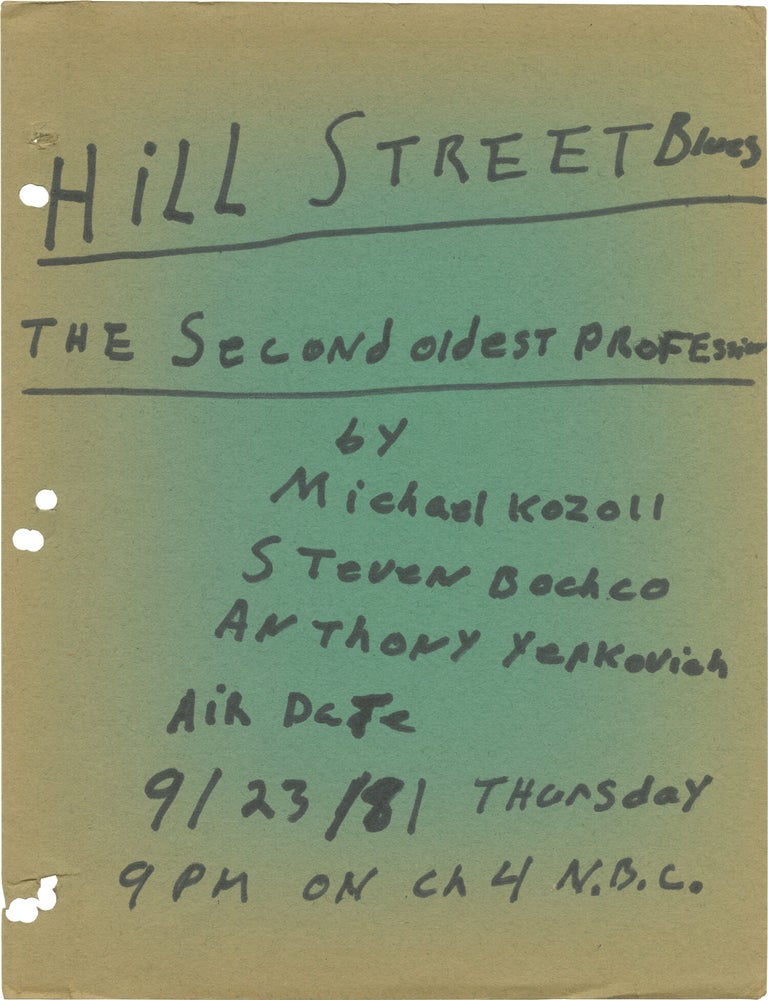 HiLL STREET Blues
THE SECONd oldEST PROFEssion
by
Michael Kozoll
STeveN Bochco
ANThoNY YerKovich
AiR DaTe
9/23/81 THursdaY
9 PM ON Ch 4 N.B.C.